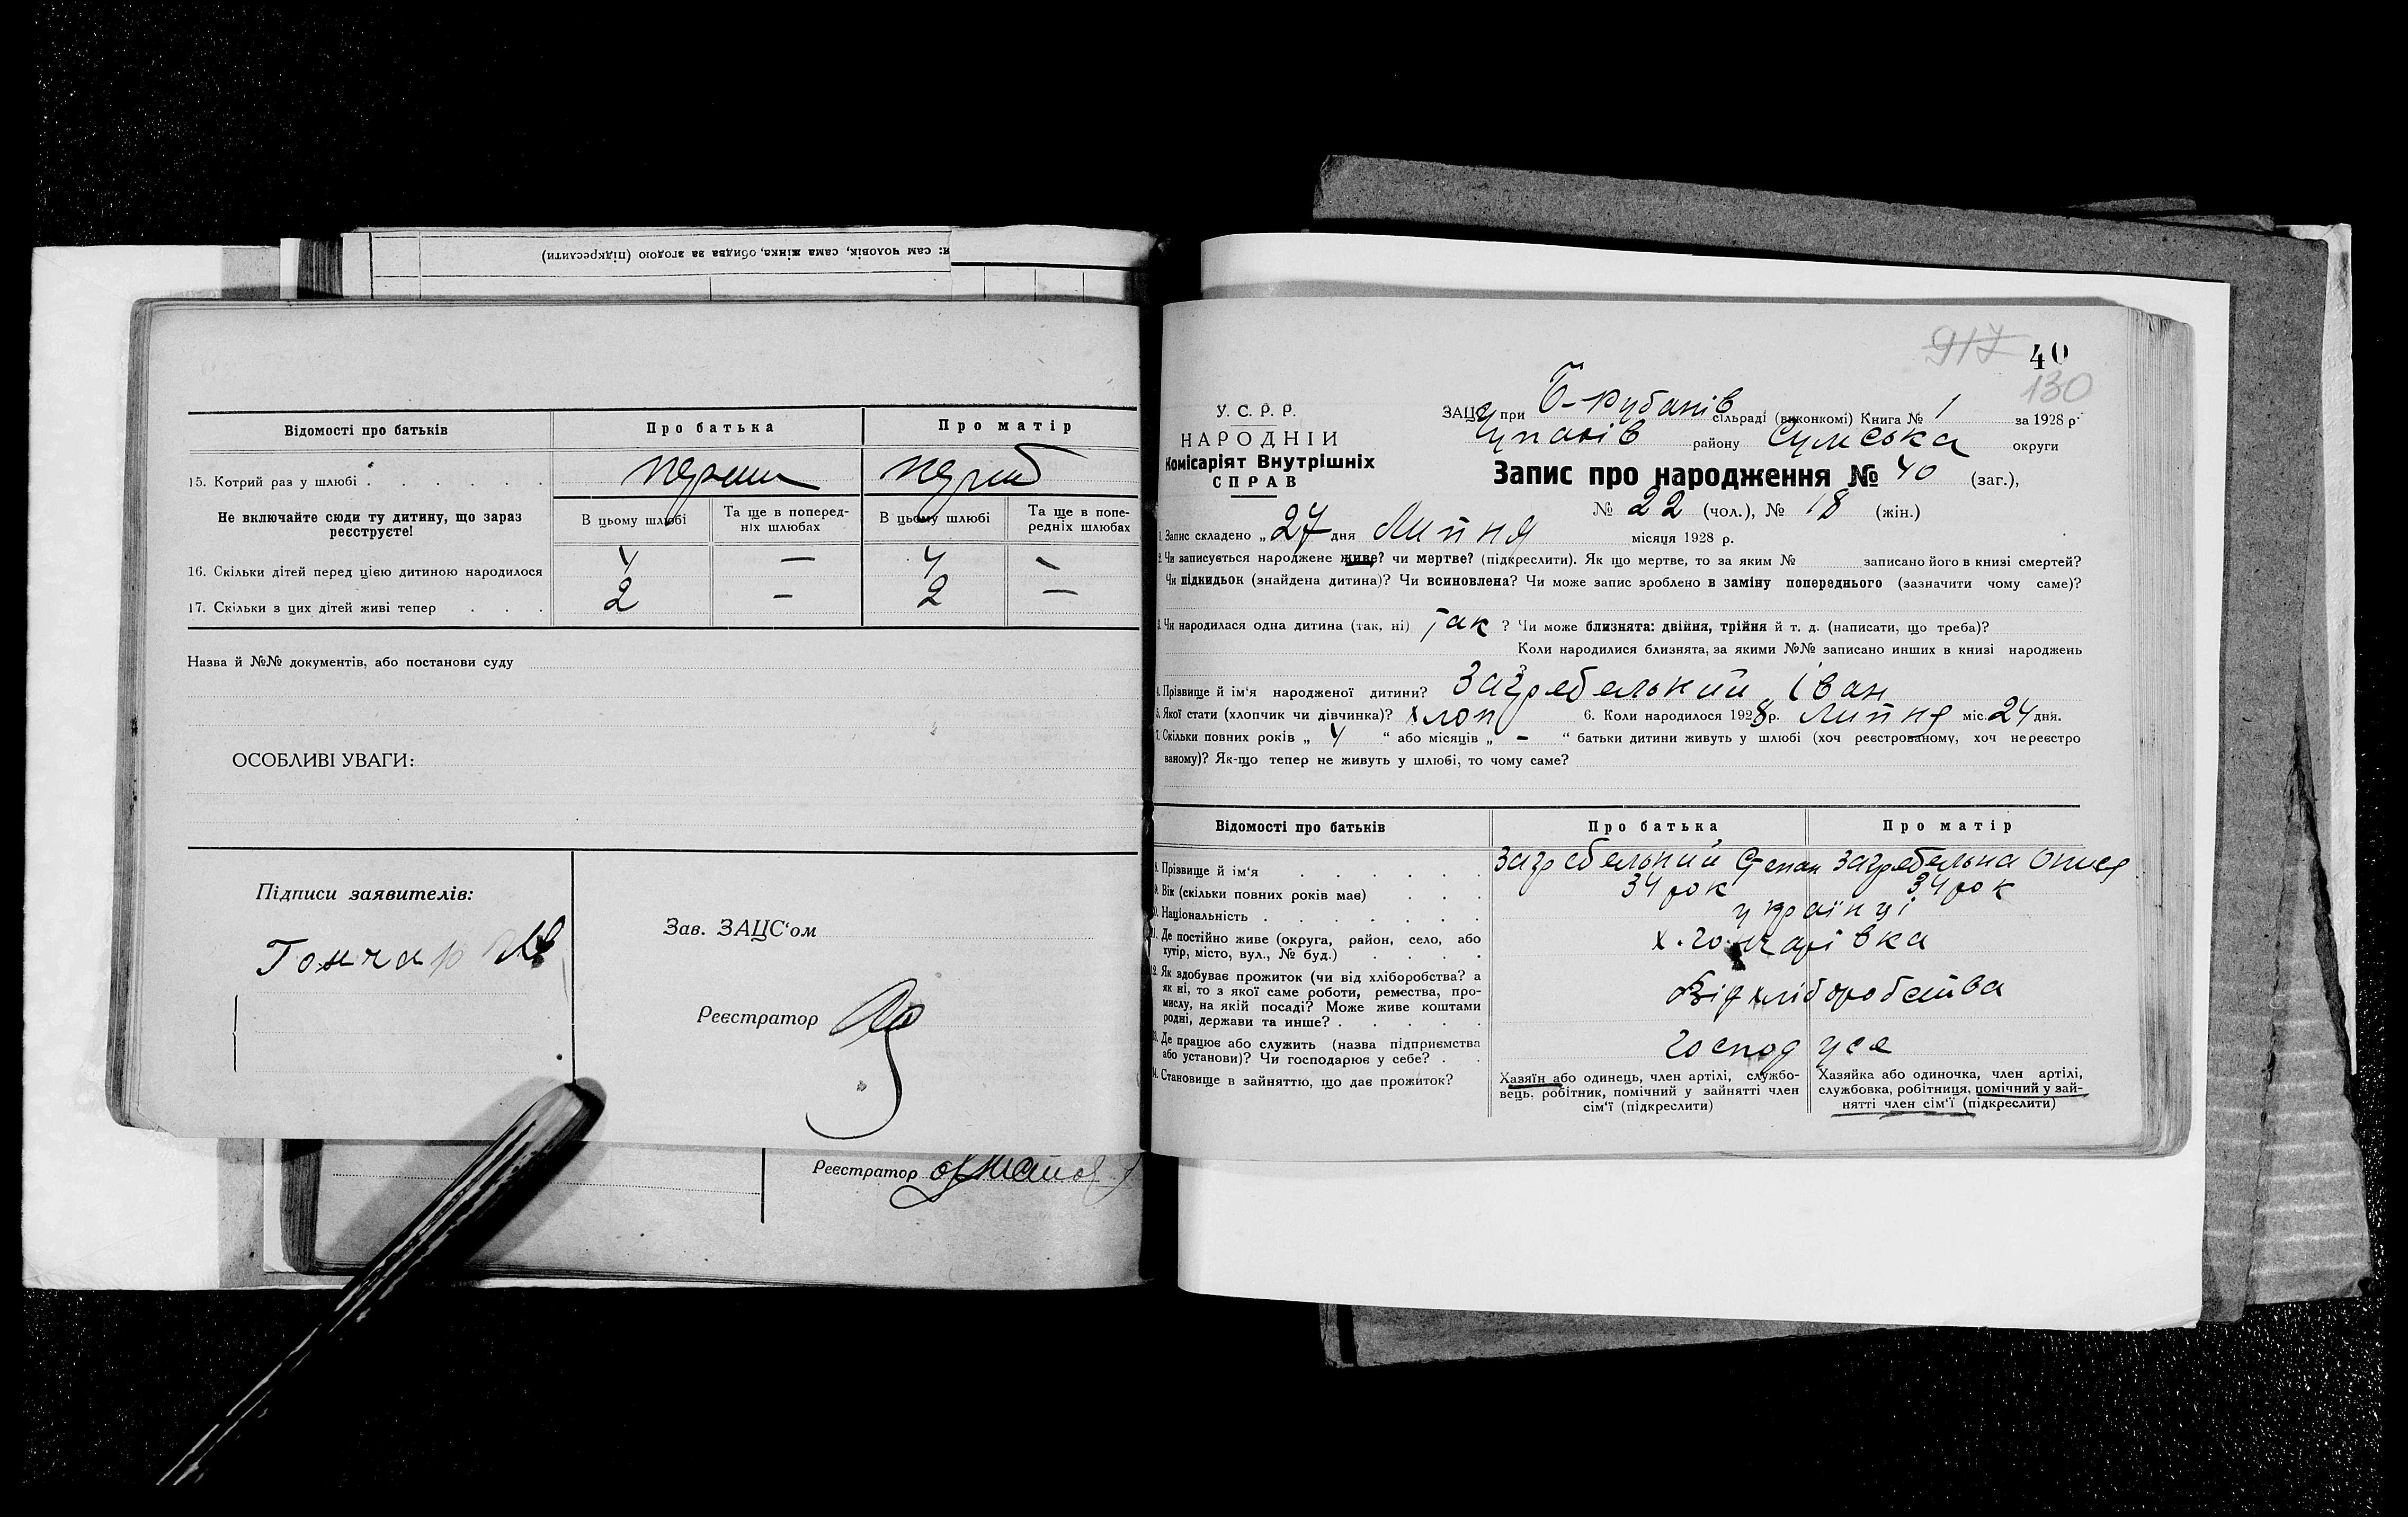 и: сам чоловік, сама жінка, обидва за згодою (підкреслити)
Відомості про батьків
Про батька
Про матір
15. Котрий раз у шлюбі . . . . . .
Не включайте сюди ту дитину, що зараз реєструєте!
В цьому шлюбі
Та ще в поперед-
ніх шлюбах
В цьому шлюбі
Та ще в попе-
редніх шлюбах
16. Скільки дітей перед цією дитиною народилося 4 — 4 —
17. Скільки з цих дітей живі тепер . . . 2 — 2 —
Назва й №№ документів, або постанови суду
ОСОБЛИВІ УВАГИ:
Підписи заявителів:
Гончар
Зав. ЗАЦС'ом
Реєстратор
Реєстратор
917 40
130
У. С. Р. Р.
НАРОДНІЙ
Комісаріят Внутрішніх
СПРАВ
ЗАЦС при Б-Рубанів сільраді (виконкомі) Книга № 1 за 1928 р.
району Сумська округи
Запис про народження № 40 (заг.),
№ 22 (чол.), № 18 (жін.)
1. Запис складено „27 дня Липня місяця 1928 р.
2. Чи записується народжене живе? чи мертве? (підкреслити). Як що мертве, то за яким № записано його в книзі смертей?
Чи підкидьок (знайдена дитина)? Чи всиновлена? Чи може запис зроблено в заміну попереднього (зазначити чому саме)?
3. Чи народилася одна дитина (так, ні) так ? Чи може близнята: двійня, трійня й т. д. (написати, що треба)?
Коли народилися близнята, за якими №№ записано инших в книзі народжень
4. Прізвище й ім'я народженої дитини? Загребельний Іван
5. Якої стати (хлопчик чи дівчинка)? хлоп 6. Коли народилося 1928 р. Липня міс. 24 дня.
7. Скільки повних років „ 4 “ або місяців „ – “ батьки дитини живуть у шлюбі (хоч реєстрованому, хоч нереєстро
ваному)? Як-що тепер не живуть у шлюбі, то чому саме?
Відомості про батьків
Про батька
Про матір
8. Прізвище й ім'я . . . . . . Загребельний Степан Загребельна
9. Вік (скільки повних років має) . . . 34 рок 34 рок
10. Національність . . . . . . . українці
11. Де постійно живе (округа, район, село, або
хутір, місто, вул., № буд.) . . . . х. Гончарівка
12. Як здобуває прожиток (чи від хліборобства? а
як ні, то з якої саме роботи, ремества, про-
мислу, на якій посаді? Може живе коштами
родні, держави та инше? . . . . . Від хліборобства
13. Де працює або служить (назва підприємства
або установи)? Чи господарює у себе? . . Господ усе
14. Становище в зайняттю, що дає прожиток?
Хазяїн або одинець, член артілі, службо-
вець, робітник, помічний у зайнятті член
сім'ї (підкреслити)
Хазяйка або одиночка, член артілі,
службовка, робітниця, помічний у зай-
нятті член сім'ї (підкреслити)